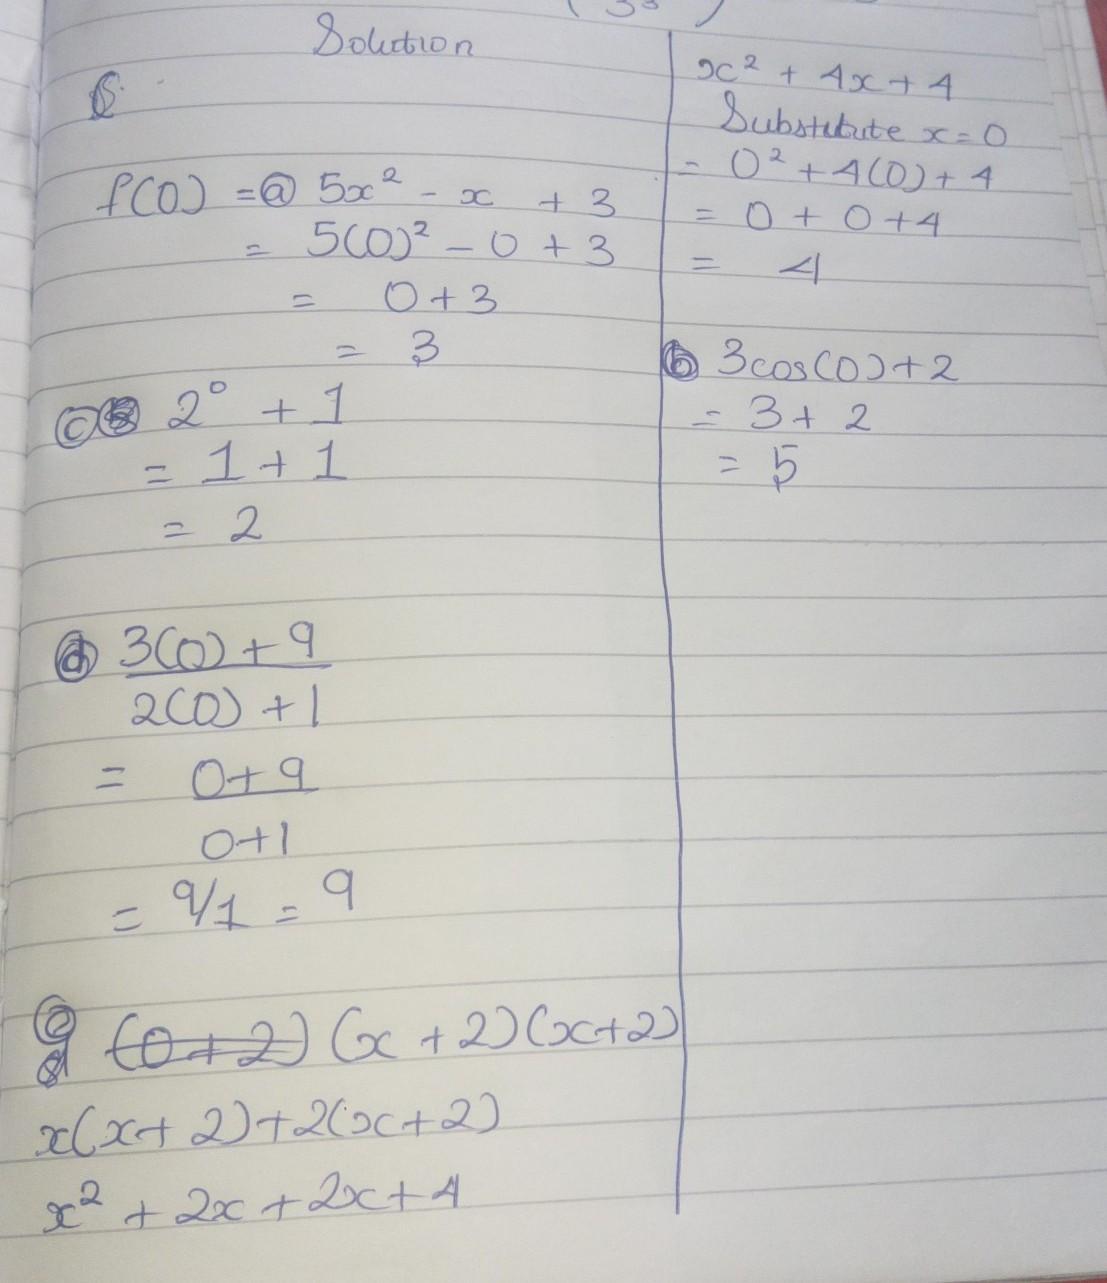 Solution
f(0) = ⓐ 5x² - x + 3
= 5(0)² - 0 + 3
= 0 + 3
= 3
ⓒ 2⁰ + 1
= 1 + 1
= 2
ⓓ 3(0) + 9
2(0) + 1
= 0 + 9
0 + 1
= 9/1 = 9
ⓔ (x + 2)(x + 2)
x(x + 2) + 2(x + 2)
x² + 2x + 2x + 4
x² + 4x + 4
Substitute x = 0
= 0² + 4(0) + 4
= 0 + 0 + 4
= 4
ⓑ 3cos(0) + 2
= 3 + 2
= 5